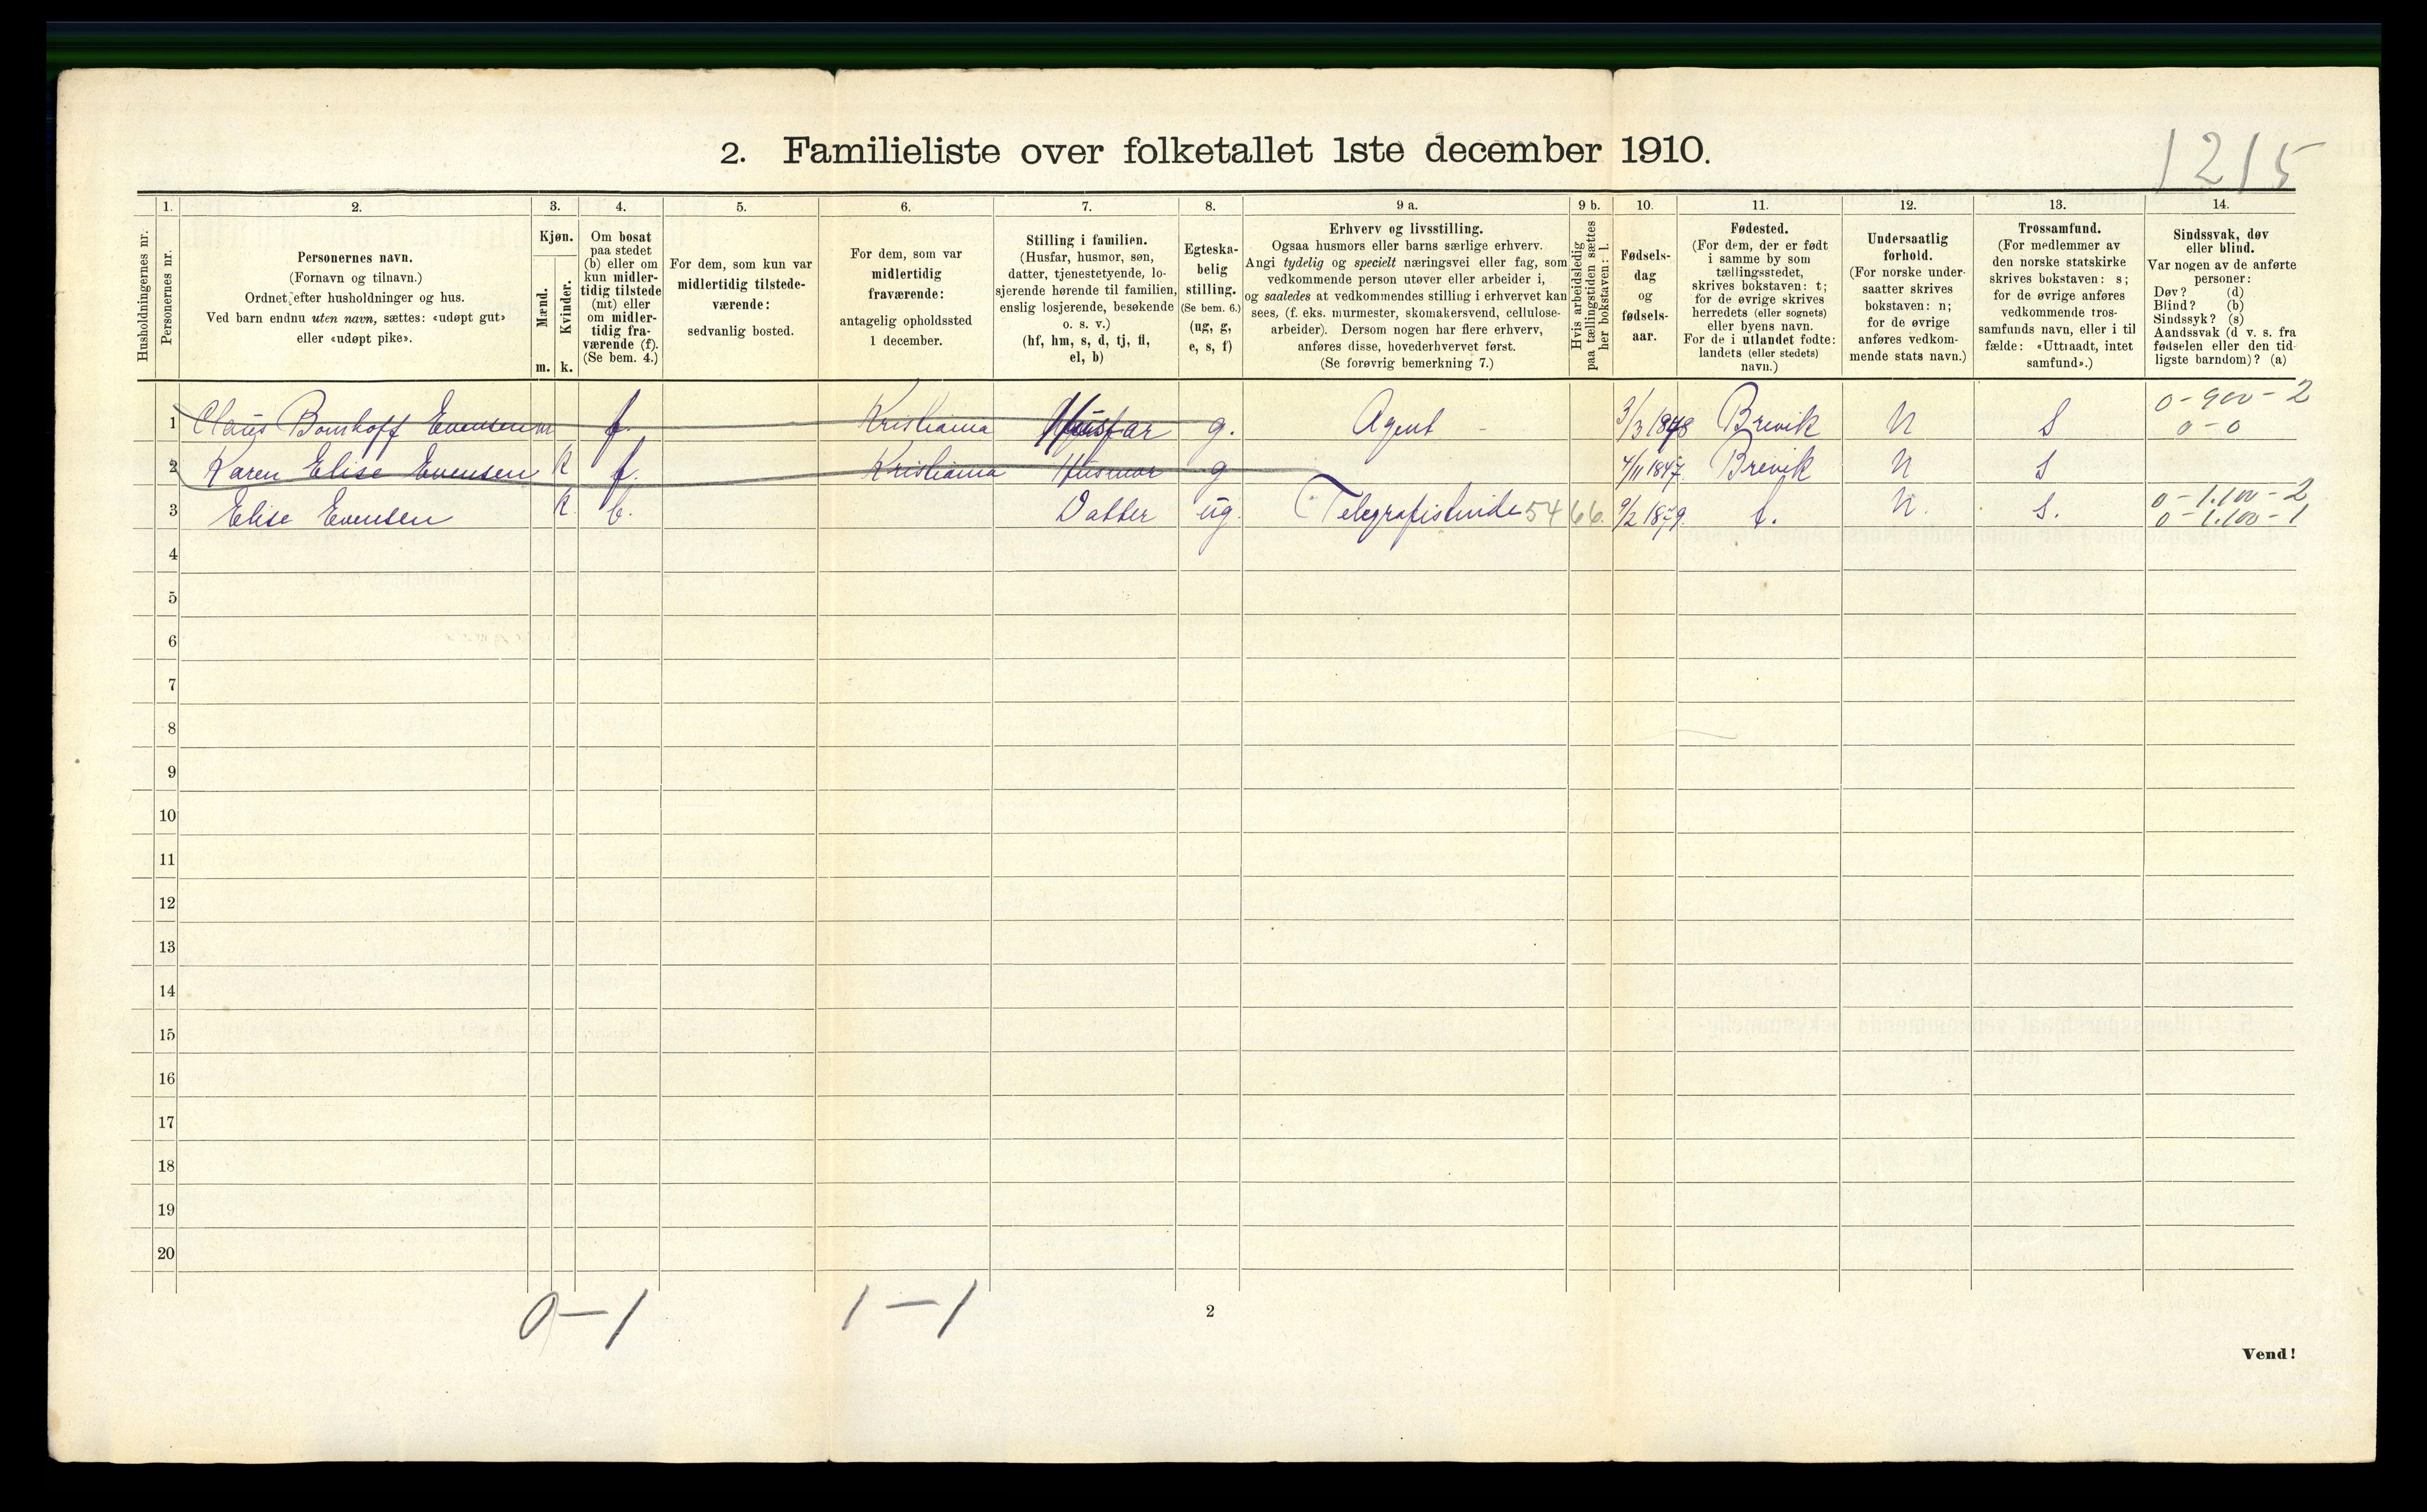 1215
2. Familieliste over folketallet 1ste december 1910.
1. 2. 3. 4. 5. 6. 7. 8. 9 a. 9 b. 10. 11. 12. 13. 14.
Husholdningernes nr.
Personernes nr.
Personernes navn.
(Fornavn og tilnavn.)
Ordnet efter husholdninger og hus.
Ved barn endnu uten navn, sættes: «udøpt gut»
eller «udøpt pike».
Kjøn.
Mænd.
Kvinder.
m. k.
Om bosat
paa stedet
(b) eller om
kun midler-
tidig tilstede
(mt) eller
om midler-
tidig fra-
værende (f).
(Se bem. 4.)
For dem, som kun var
midlertidig tilstede-
værende:
sedvanlig bosted.
For dem, som var
midlertidig
fraværende:
antagelig opholdssted
1 december.
Stilling i familien.
(Husfar, husmor, søn,
datter, tjenestetyende, lo-
sjerende hørende til familien,
enslig losjerende, besøkende
o. s. v.)
(hf, hm, s, d, tj, fl,
el, b)
Egteska-
belig
stilling.
(Se bem. 6.)
(ug, g,
e, s, f)
Erhverv og livsstilling.
Ogsaa husmors eller barns særlige erhverv.
Angi tydelig og specielt næringsvei eller fag, som
vedkommende person utøver eller arbeider i,
og saaledes at vedkommendes stilling i erhvervet kan
sees, (f. eks. murmester, skomakersvend, cellulose-
arbeider). Dersom nogen har flere erhverv,
anføres disse, hovederhvervet først.
(Se forøvrig bemerkning 7.)
Hvis arbeidsledig
paa tællingstiden sættes
her bokstaven: l.
Fødsels-
dag
og
fødsels-
aar.
Fødested.
(For dem, der er født
i samme by som
tællingsstedet,
skrives bokstaven: t;
for de øvrige skrives
herredets (eller sognets)
eller byens navn.
For de i utlandet fødte:
landets (eller stedets)
navn.)
Undersaatlig
forhold.
(For norske under-
saatter skrives
bokstaven: n;
for de øvrige
anføres vedkom-
mende stats navn.)
Trossamfund.
(For medlemmer av
den norske statskirke
skrives bokstaven: s;
for de øvrige anføres
vedkommende tros-
samfunds navn, eller i til-
fælde: «Uttraadt, intet
samfund».)
Sindssvak, døv
eller blind.
Var nogen av de anførte
personer:
Døv? (d)
Blind? (b)
Sindssyk? (s)
Aandssvak (d v. s. fra
fødselen eller den tid-
ligste barndom)? (a)
1 Claus Bomhoff Evensen m f. Kristiania Husfar g. Agent - 3/3 1848 Brevik N S 0-900-2
0-0
2 Karen Elise Evensen k f. Kristiania Husmor g 4/11 1847. Brevik N S
3 Elise Evensen k b. Datter ug. Telegrafistinde 54 66. 9/2 1879. t. N. S. 0-1.100-2
0-1.100-1
4
5
6
7
8
9
10
11
12
13
14
15
16
17
18
19
20
0-1 1-1
2
Vend!